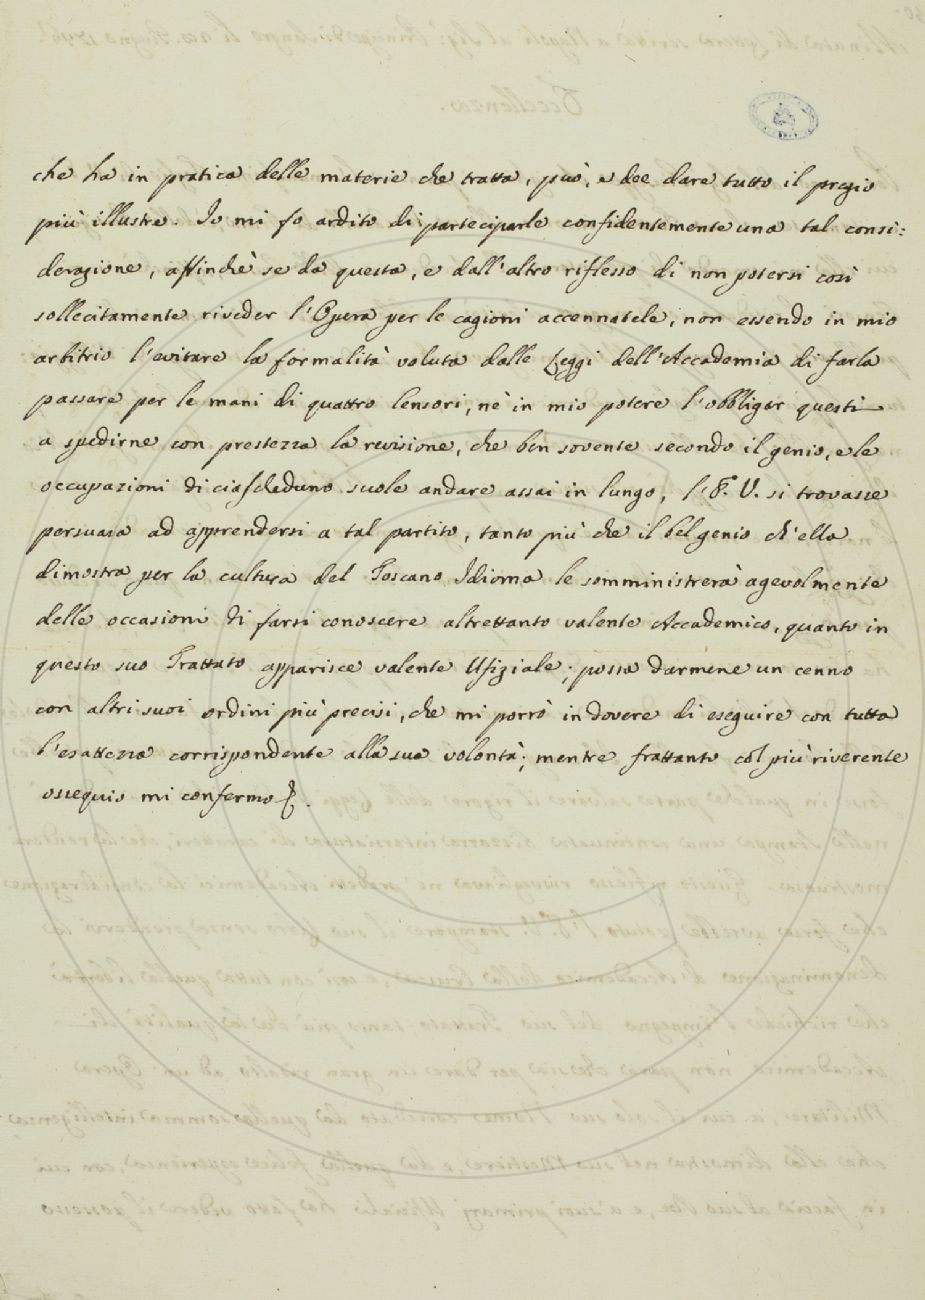 che ha in pratica delle materie che tratta, può, e dee dare tutto il pregio
più illustre. Io mi fo ardito di parteciparle confidentemente una tal consi:
derazione, affinchè se da questa, e dall'altro riflesso di non potersi così
sollecitamente riveder l'Opera per le cagioni accennatele, non essendo in mio
arbitrio l'evitare la formalità voluta dalle Leggi dell'Accademia di farla
passare per le mani di quattro Censori, nè in mio potere l'obbligar questi
a spedirne con prestezza la revisione, che ben sovente secondo il genio, e le
occupazioni di ciascheduno suole andare assai in lungo, l'E. V. si trovasse
persuasa ad apprendersi a tal partito, tanto più che il bel genio ch'ella
dimostra per la cultura del Toscano Idioma le somministrerà agevolmente
delle occasioni di farsi conoscere altrettanto valente Accademico, quanto in
questo suo Trattato apparisce valente Ufiziale; possa darmene un cenno
con altri suoi ordini più precisi, che mi porrò in dovere di eseguire con tutta
l'esattezza corrispondente alla sua volontà; mentre frattanto col più riverente
ossequio mi confermo